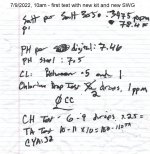 7/9/2022, 10am - first test with new kit and new SWG
Salt per Salt 3475 ppm
78.
PH per digital: 7.46
PH : 7.5
CL: Between .5 and 1
Chlorine Drop Test 2 drops, 1 ppm
∅ CC
CH Test 6-9 drops x 25 =
TA Test 10-11 x 10 = 100-110
CYA: 32